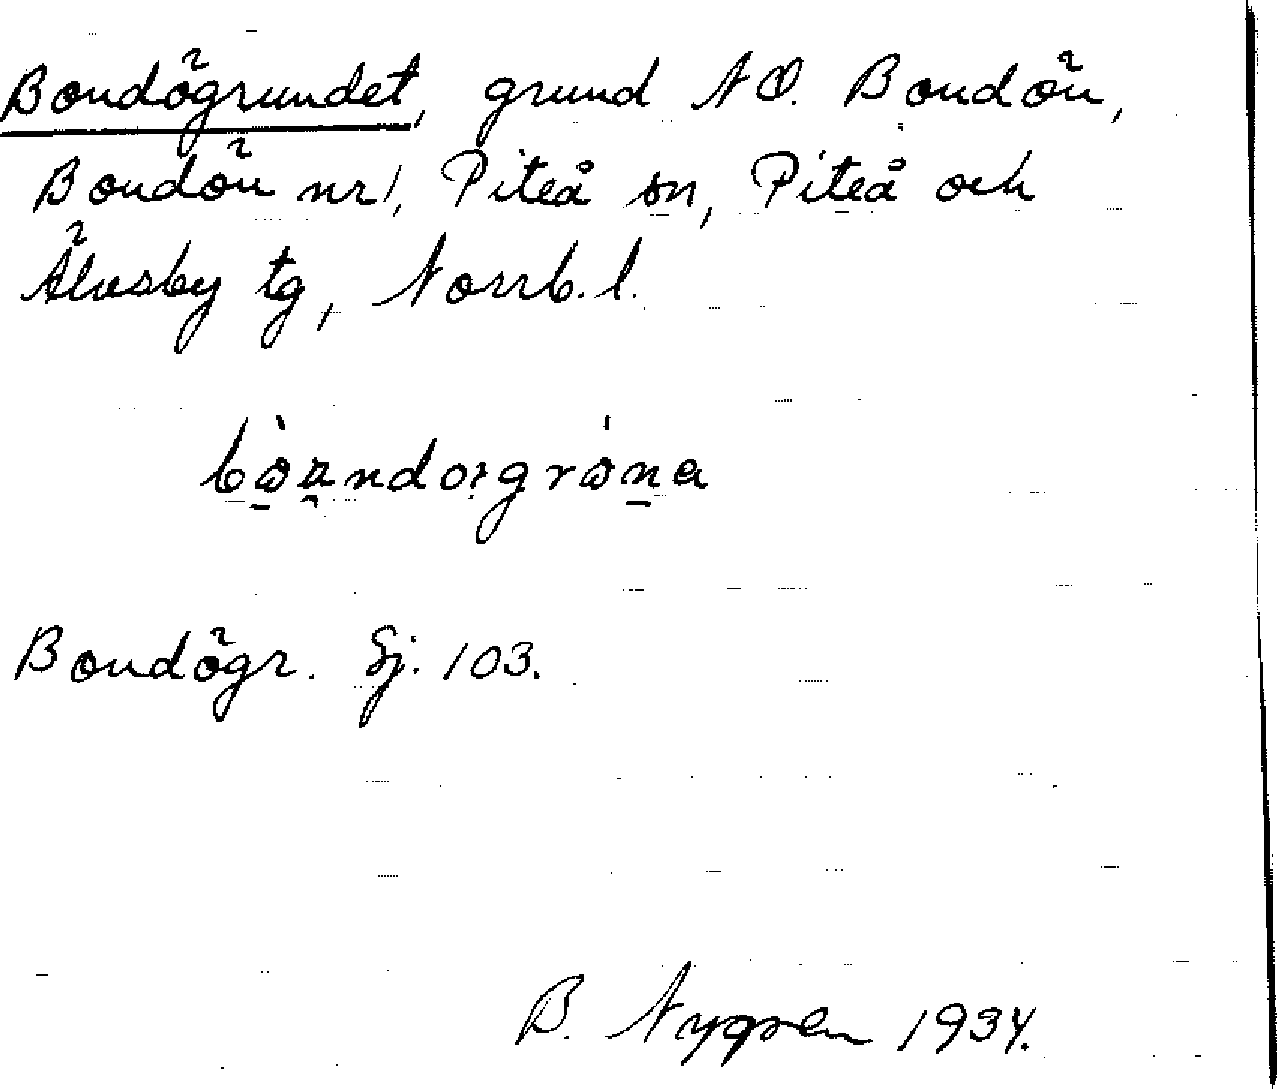 Bondögrundet, grund NO. Bondön,
Bondön nr 1, Piteå sn, Piteå och
Älvsby tg, Norrb. l.
Bondögr. Sj. 103.
B. Nygren 1934.